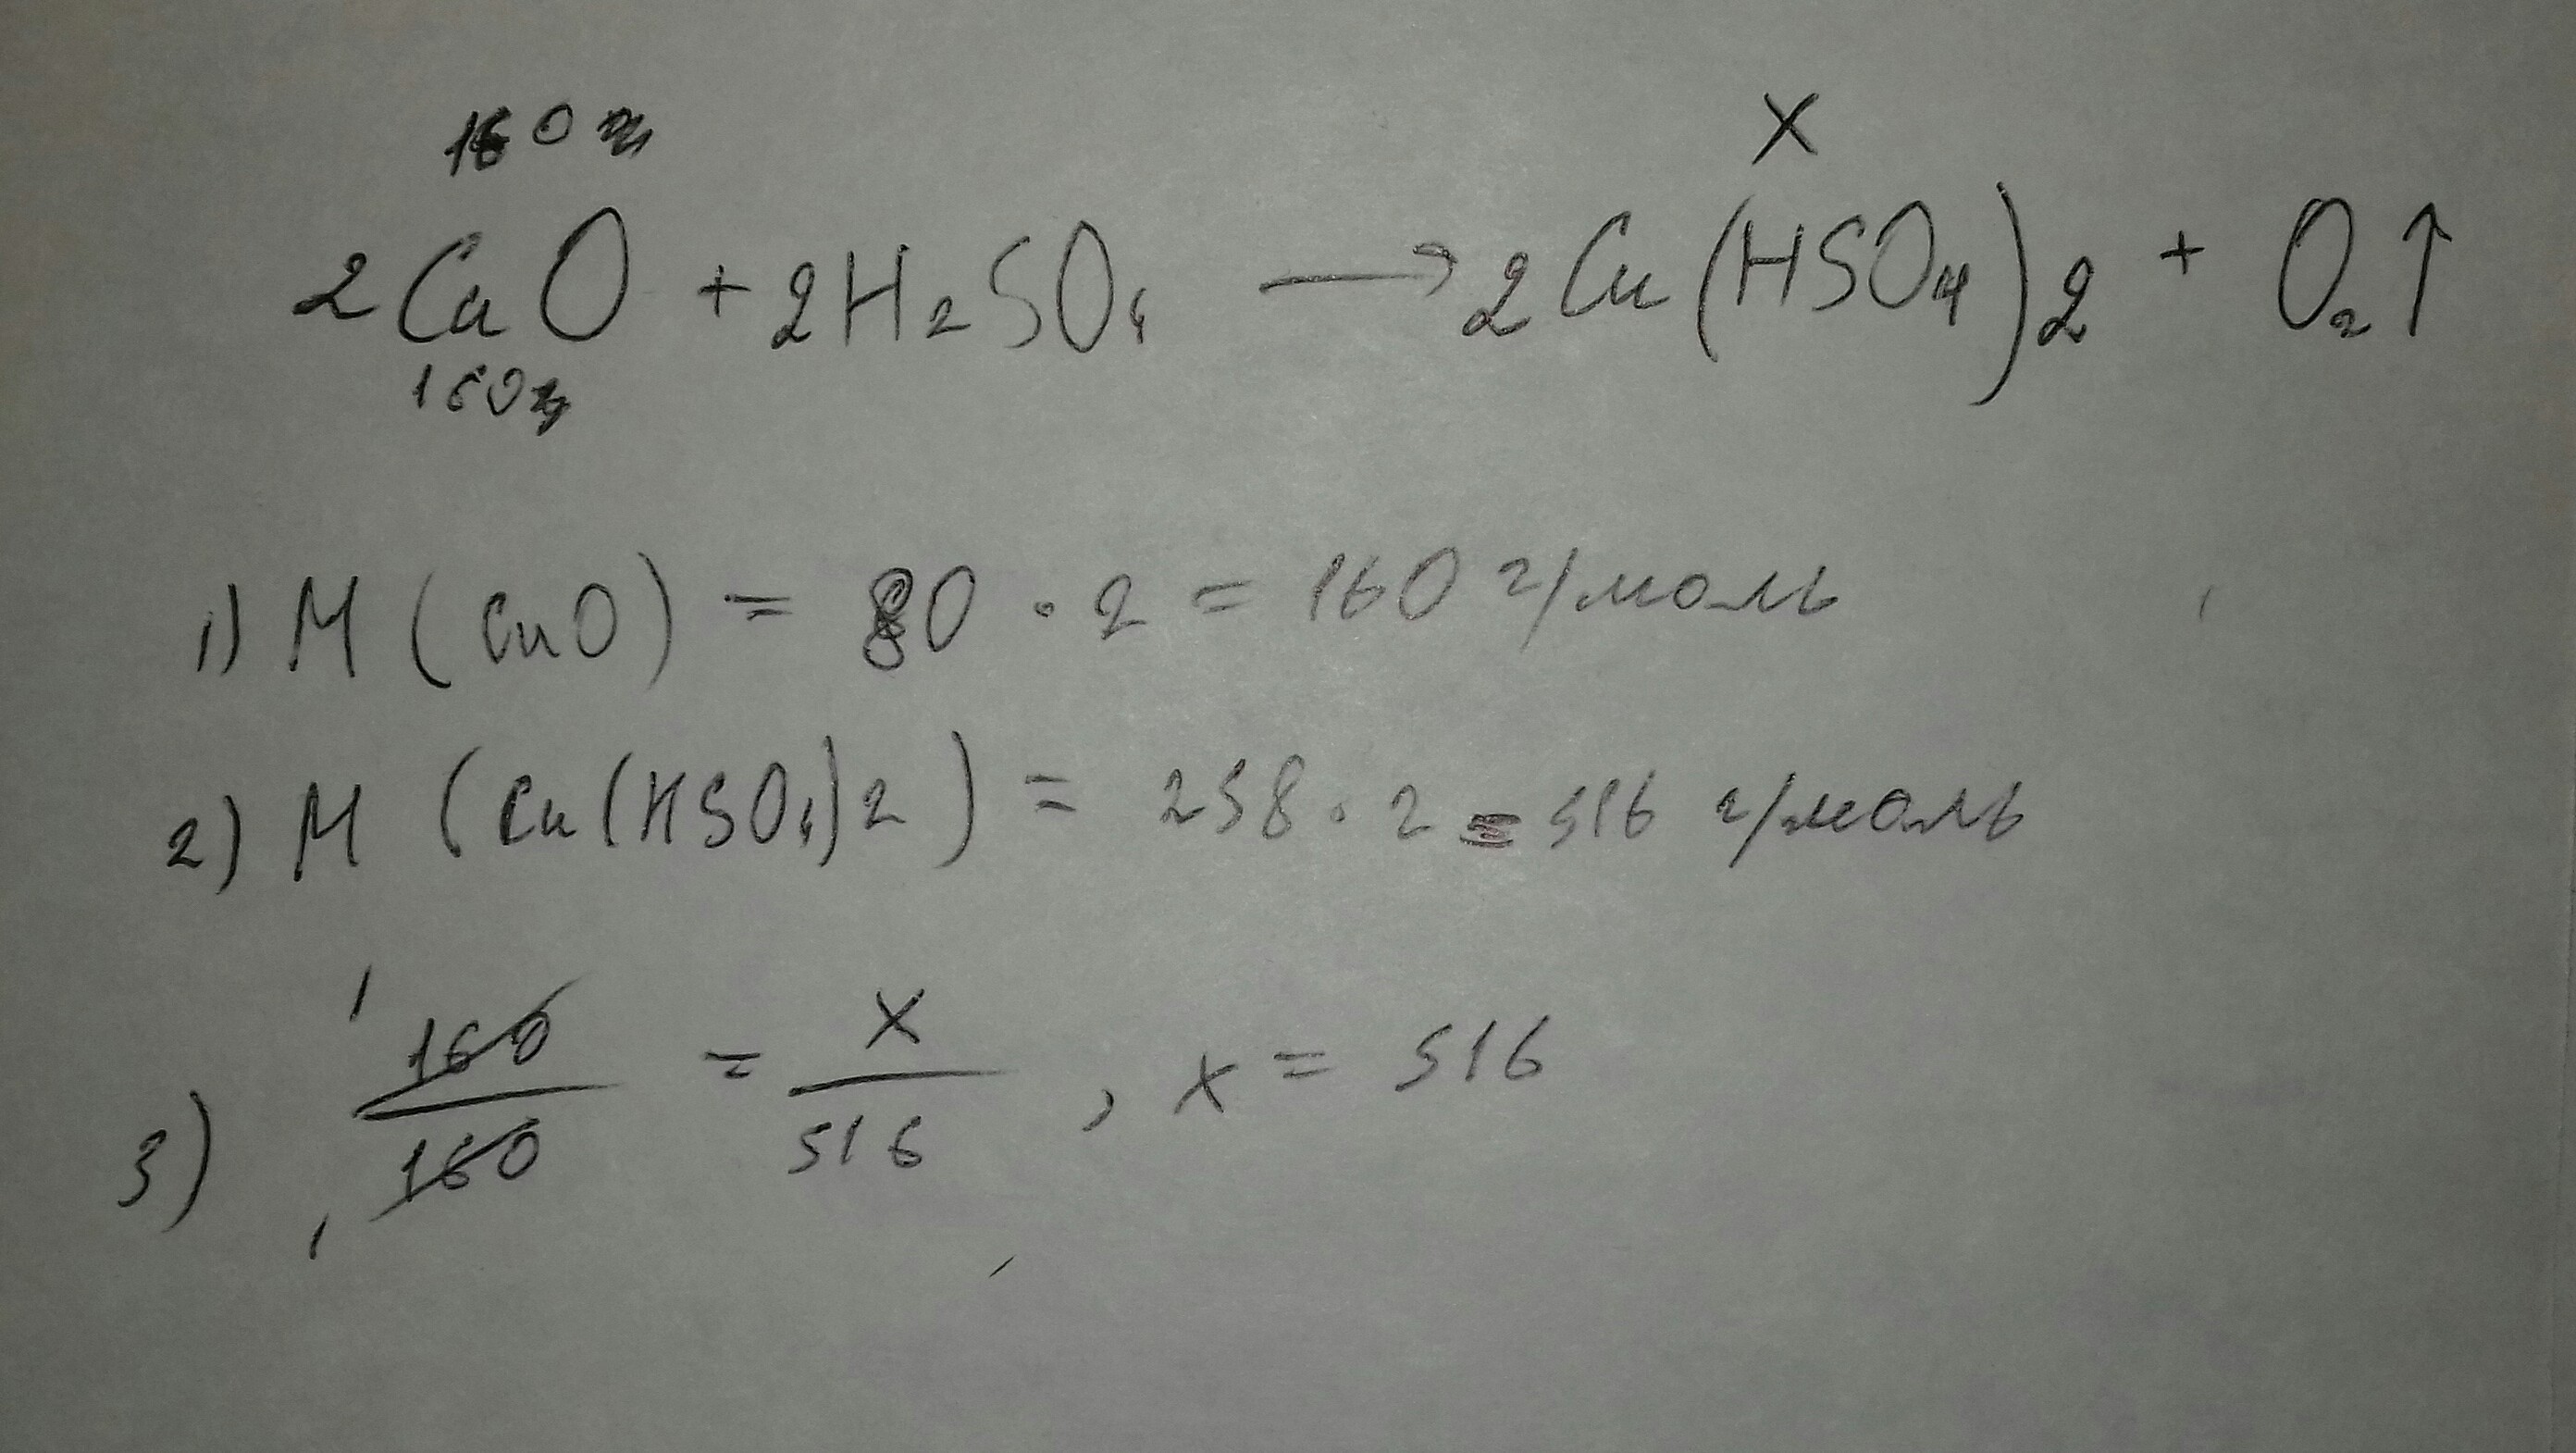 160 г x
2 CuO + 2H2SO4 → 2 Cu(HSO4)2 + O2↑
160 г
1) M (CuO) = 80 · 2 = 160 г/моль
2) M (Cu(HSO4)2) = 258 · 2 = 516 г/моль
1
3) 160/160 = x/516 , x = 516
1